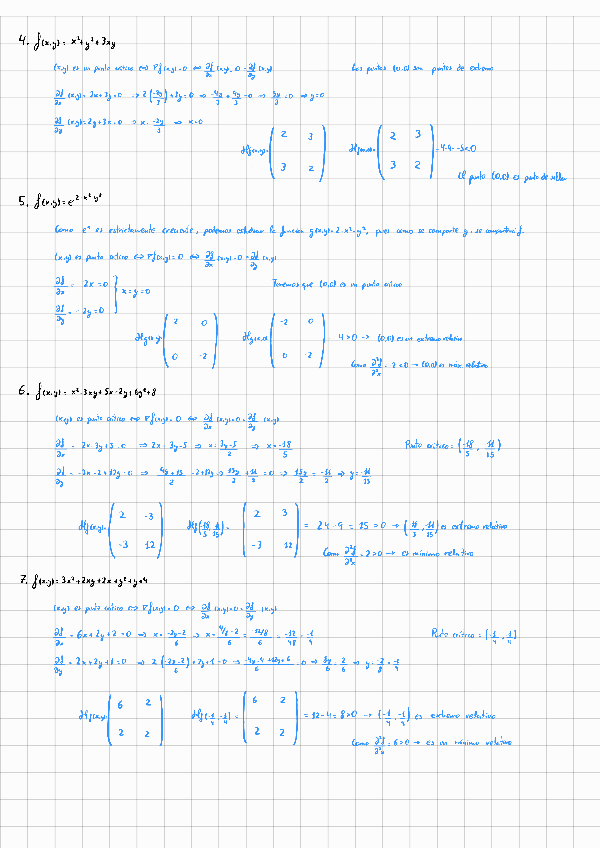 4. f(x,y) = x²+y²+3xy
(x,y) es un punto crítico ⇔ ∇f(x,y)=0 ⇔ ∂f/∂x (x,y)=0=∂f/∂y (x,y)
Los puntos (0,0) son puntos de extremo
∂f/∂x (x,y)= 2x+3y=0 → 2(-2y/3)+3y=0 ⇒
⇒ y=0
∂f/∂y (x,y)=2y+3x=0 ⇒ x=-2y/3 ⇒ x=0
Hf(x,y)= ( 2 3 / 3 2 ) Hf(0,0)= ( 2 3 / 3 2 )
El punto (0,0) es punto de silla
5. f(x,y)=e^(2-x²-y²)
Como eˣ es estrictamente creciente, podemos estudiar la función g(x,y)=2-x²-y², pues como se comporte g, se comportará f.
(x,y) es punto crítico ⇔ ∇f(x,y)=0 ⇔ ∂f/∂x (x,y)=0=∂f/∂y (x,y)
∂f/∂x = -2x=0
∂f/∂y = -2y=0 } x=y=0
Tenemos que (0,0) es un punto crítico
Hg(x,y)= ( 2 0 / 0 -2 ) Hg(0,0)= ( -2 0 / 0 -2 )
4>0 → (0,0) es un extremo relativo
→ (0,0) es máx. relativo
6. f(x,y) = x²-3xy+5x-2y+6y²+8
(x,y) es punto crítico ⇔ ∇f(x,y)=0 ⇔ ∂f/∂x (x,y)=0=∂f/∂y (x,y)
∂f/∂x = 2x-3y+5=0 ⇒ 2x=3y-5 ⇒ x=3y-5/2 ⇒ x=-18/5
Punto crítico = (-18/5, -11/15)
⇒ 15y/2=-11/2 ⇒ y=-11/15
Hf(x,y)= ( 2 -3 / -3 12 ) ( 2 3 / -3 12 ) = 24-9 = 15 >0 →
es extremo relativo
2>0 → es mínimo relativo
7. f(x,y)=3x²+2xy+2x+y²+y+4
(x,y) es punto crítico ⇔ ∇f(x,y)=0 ⇔ ∂f/∂x (x,y)=0=∂f/∂y (x,y)
∂f/∂x = 6x+2y+2=0 ⇒ x=-2y-2/6 ⇒
Punto crítico = (-1/4, -1/4)
∂f/∂y = 2x+2y+1=0 ⇒ 2(-2y-2/6)+2y+1=0 ⇒
Hf(x,y)= ( 6 2 / 2 2 ) Hf(-1/4, -1/4)= ( 6 2 / 2 2 ) = 12-4=8>0 → (-1/4, -1/4) es extremo relativo
6>0 → es un mínimo relativo